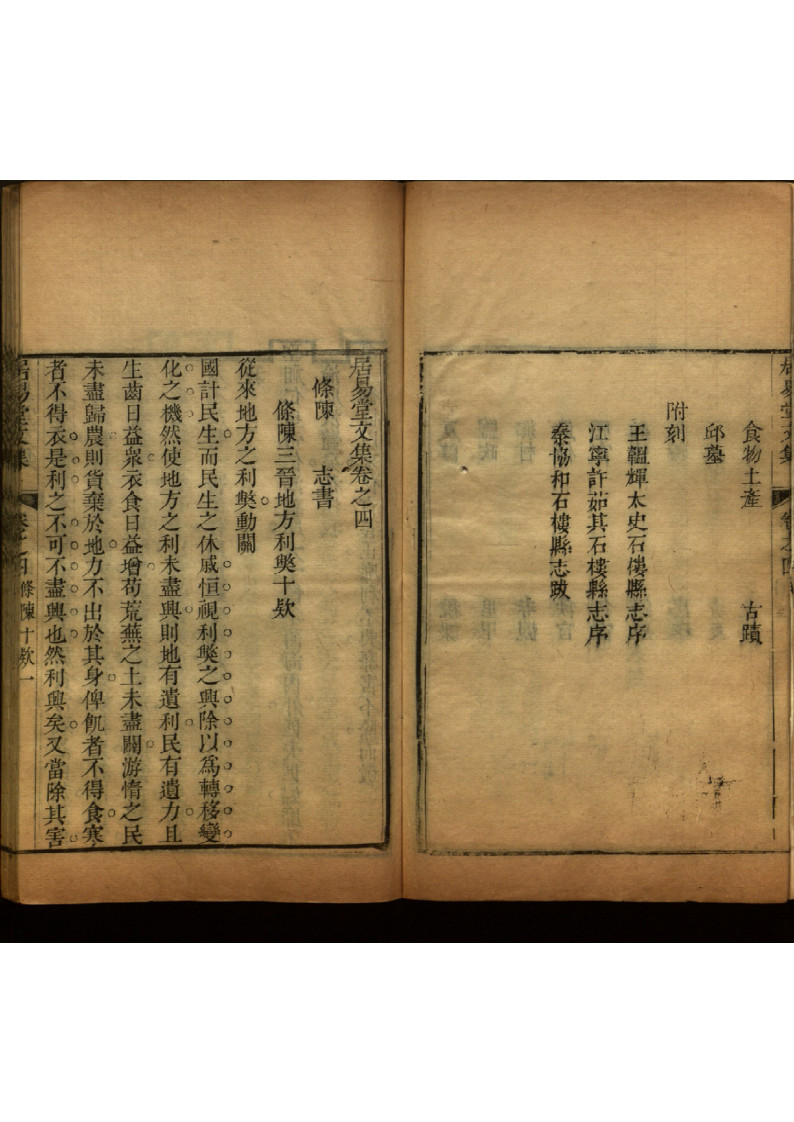 居易堂文集
卷之四
食物土產 古蹟
邱墓
附刻
王韞輝太史石僂縣志序
江寧許茹其石樓縣志序
秦協和石樓縣志跋
居易堂文集卷之四
條陳 志書
條陳三晉地方利獘十欵
從來地方之利獘動關
國計民生而民生之休戚恒視利獘之興除以爲轉移變
化之機然使地方之利未盡興則地有遺利民有遺力且
生齒日益衆衣食日益增苟荒蕪之土未盡闢游惰之民
未盡歸農則貨棄於地力不出於其身俾飢者不得食寒
者不得衣是利之不可不盡興也然利興矣又當除其害
居易堂文集
卷之四 條陳十欵 一